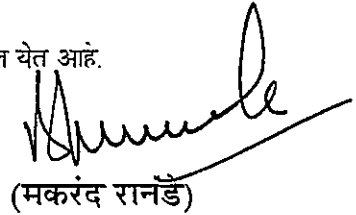 येत आहे.
(मकरंद रानडे)